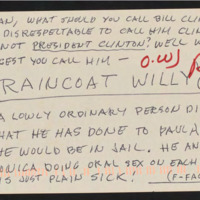 AN, WHAT SHOULD YOU CALL BILL CLIN
DISRESPECTABLE TO CALL HIM CLIN
NOT PRESIDENT CLINTON? WE'LL W
EST YOU CALL HIM — O.W.
RAINCOAT WILLY
A LOWLY ORDINARY PERSON DI
HAT HE HAS DONE TO PAULA
HE WOULD BE IN JAIL. HE AN
ONICA DOING ORAL SEX ON EACH
IS JUST PLAIN SICK! (F-FAC